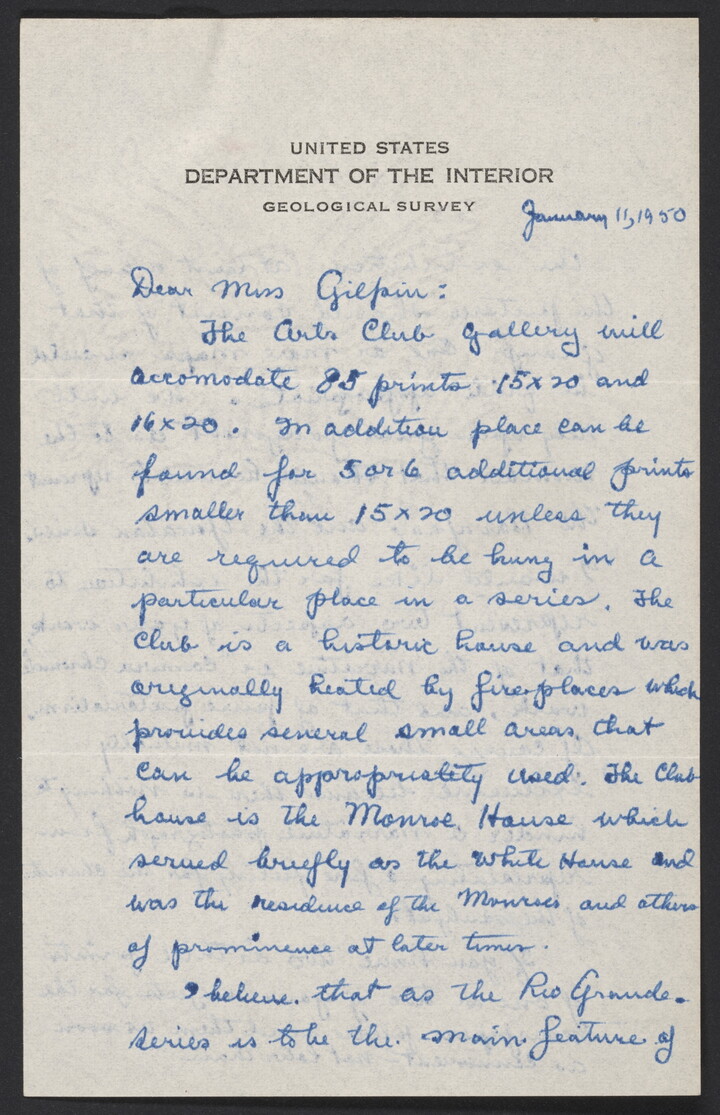 UNITED STATES
DEPARTMENT OF THE INTERIOR
GEOLOGICAL SURVEY
January 11, 1950
Dear Miss Gilpin:
The Arts Club gallery will
accomodate 85 prints 15x20 and
16x20. In addition place can be
found for 5 or 6 additional prints
smaller than 15x20 unless they
are required to be hung in a
particular place in a series. The
Club is a historic house and was
originally heated by fireplaces which
provides several small areas that
can be appropriately used. The Club
house is the Monroe House which
served briefly as the White House and
was the residence of the Monroes and others
of prominence at later times.
I believe that as the Rio Grande
series is to be the main feature of